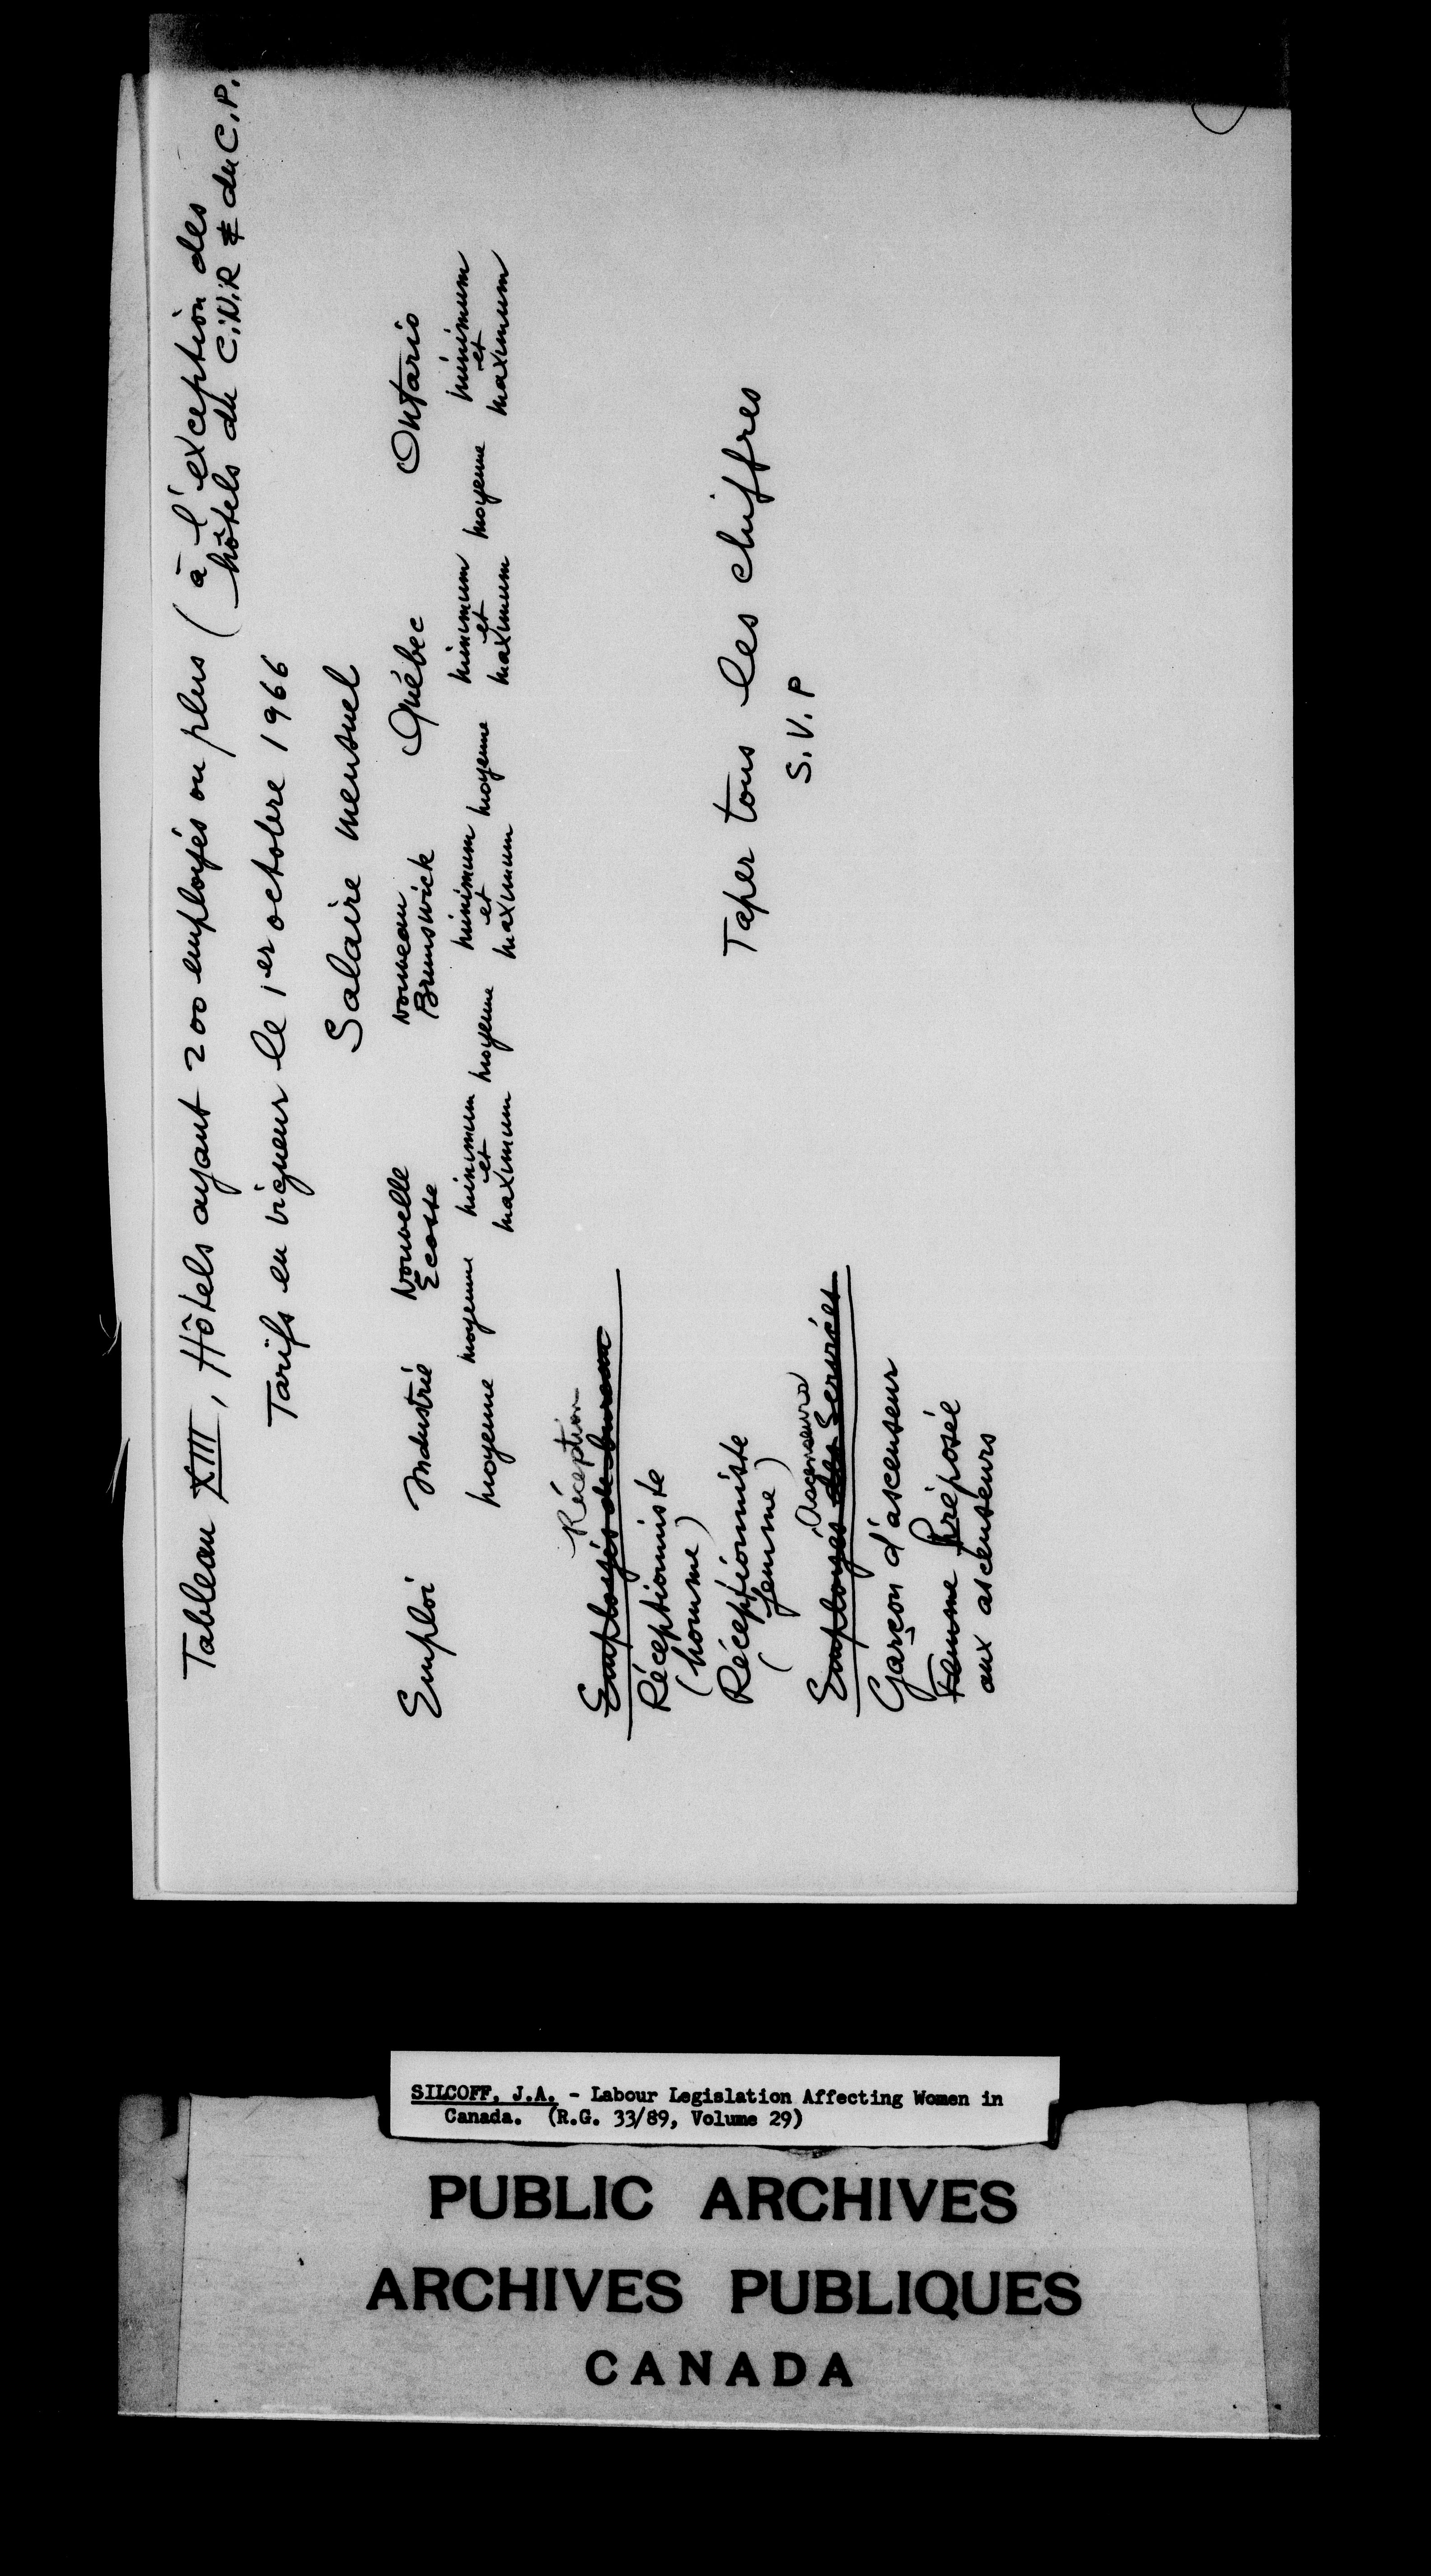 Tableau XIII, Hôtels ayant 200 employés ou plus (à l'exception des
hôtels du C.N.R & du C.P.
Tarifs en vigueur le 1er octobre 1966
Salaire mensuel
Emploi Industrie Nouvelle Nouveau Québec Ontario
Ecosse Brunswick
moyenne moyenne minimum moyenne minimum moyenne minimum moyenne minimum
et et et et
maximum maximum maximum maximum
Réception
Employés de bureau
Réceptionniste
(homme)
Réceptionniste
(femme)
Ascenseurs
Employés des Services
Garçon d'ascenseur
Femme Préposée
aux ascenseurs
Taper tous les chiffres
S.V.P
SILCOFF, J.A. - Labour Legislation Affecting Women in
Canada. (R.G. 33/89, Volume 29)
PUBLIC ARCHIVES
ARCHIVES PUBLIQUES
CANADA